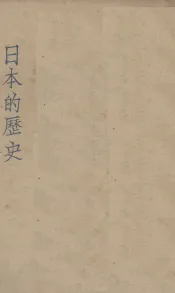 日本的歷史